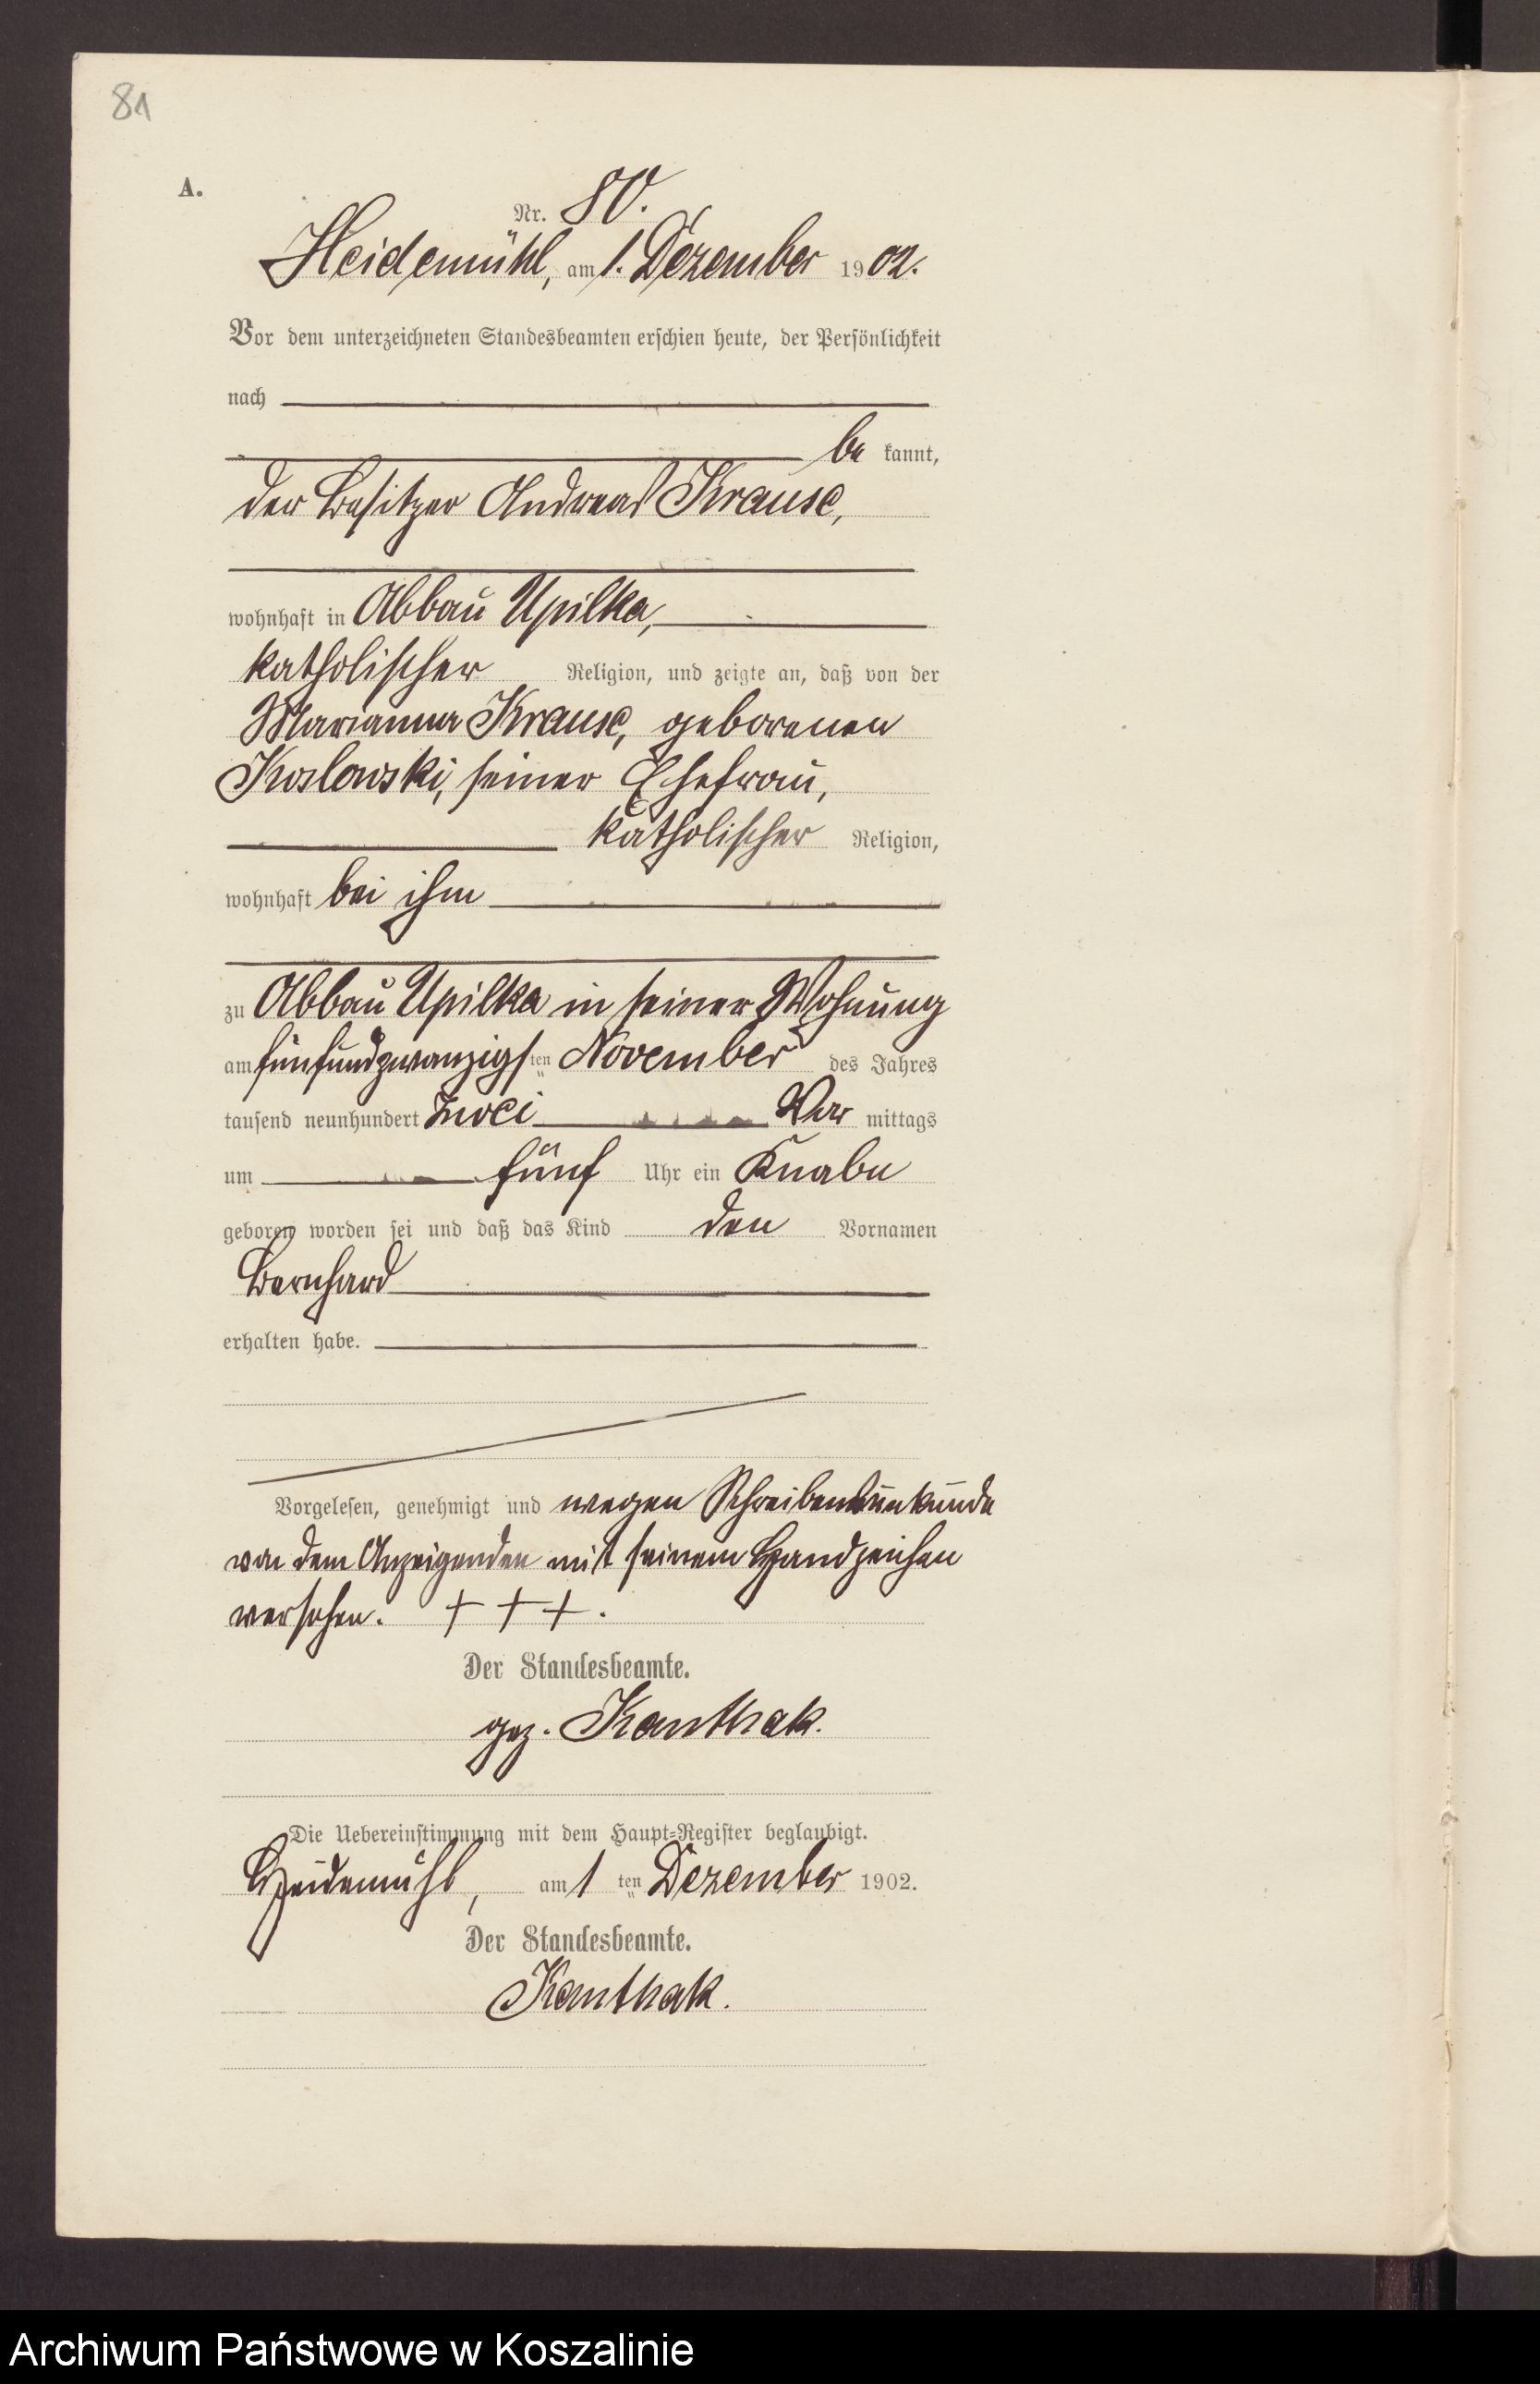 81
A.
Nr. 80.
Heidemühl, am 1. Dezember 1902.
Vor dem unterzeichneten Standesbeamten erschien heute, der Persönlichkeit
nach
be kannt,
der Besitzer Andreas Krause,
wohnhaft in Abbau Upilka,
katholischer Religion, und zeigte an, daß von der
Marianna Krause, geborenen
Koslowski, seiner Ehefrau,
katholischer Religion,
wohnhaft bei ihm
zu Abbau Upilka in seiner Wohnung
am fünfundzwanzigsten November des Jahres
tausend neunhundert zwei Vor mittags
um fünf Uhr ein Knabe
geboren worden sei und daß das Kind den Vornamen
Bernhard
erhalten habe.
Vorgelesen, genehmigt und wegen Schreibensunkunde
von dem Anzeigenden mit seinem Handzeichen
versehen. + + + .
Der Standesbeamte.
gez. Kanthak.
Die Uebereinstimmung mit dem Haupt-Register beglaubigt.
Heidemühl, am 1 ten Dezember 1902.
Der Standesbeamte.
Kanthak.
Archiwum Państwowe w Koszalinie